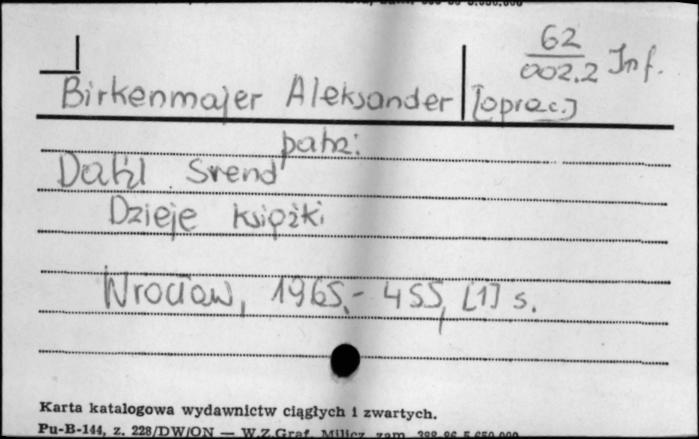 62
002.2 Inf.
Birkenmajer Aleksander [oprac.]
patrz:
Dahl Svend
Dzieje książki
Wrocław, 1965.- 455, [1] s.
Karta katalogowa wydawnictw ciągłych i zwartych.
Pu-B-144, z. 228/DW/ON — W.Z.Graf. Milicz zam.